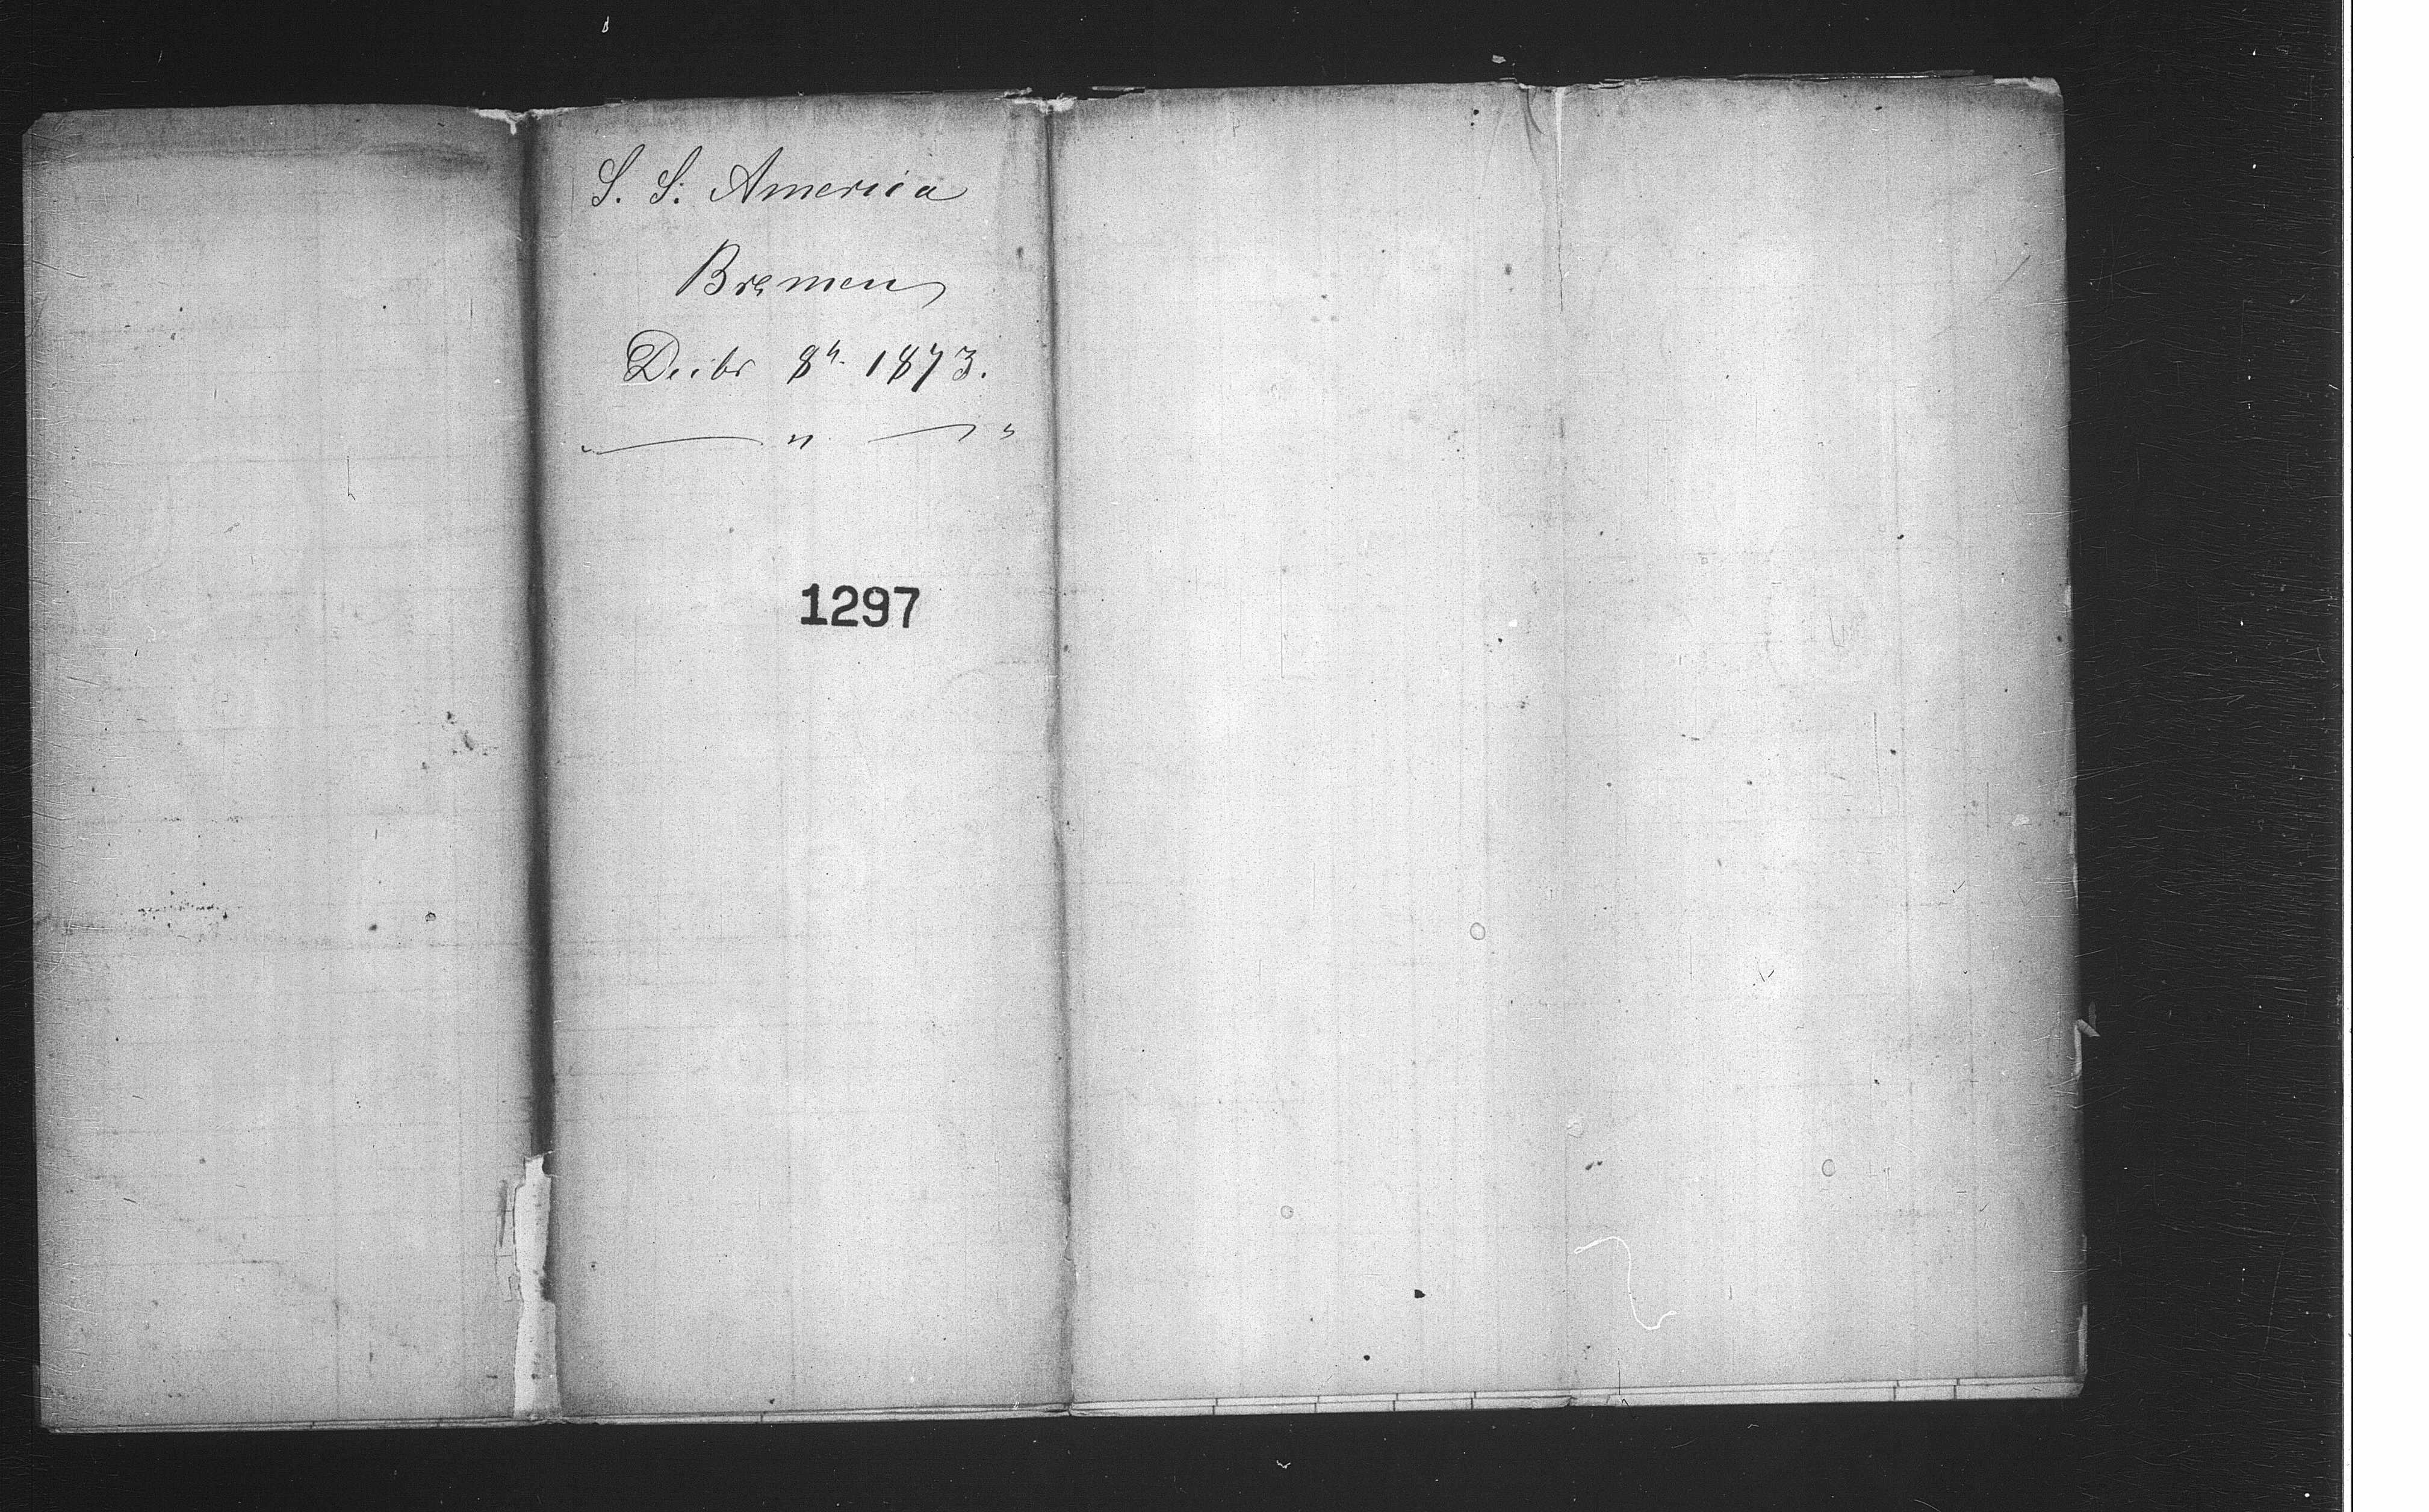 S. S. America
Bremen
Decbr 8th. 1873.
1297